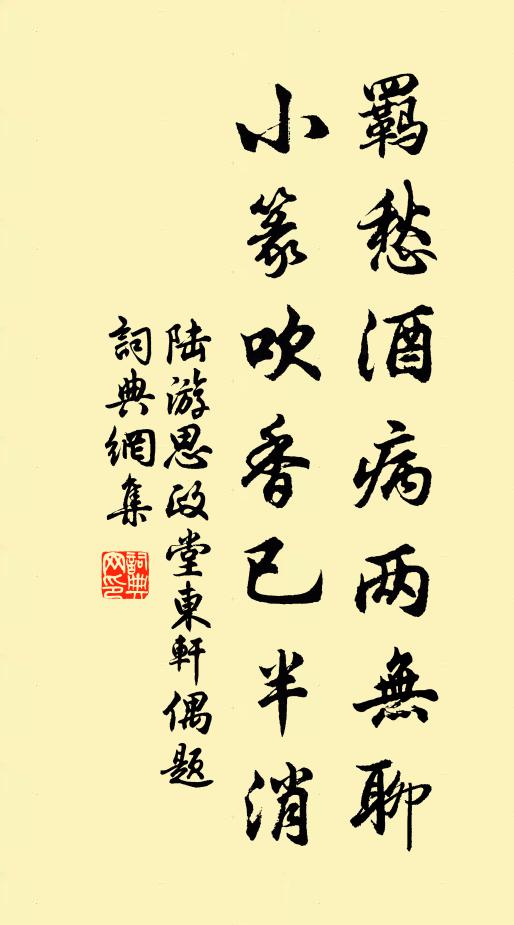 羁愁酒病两無聊
小篆吹香已半消
陆游思政堂東軒偶题
詞典網集
詞典网印